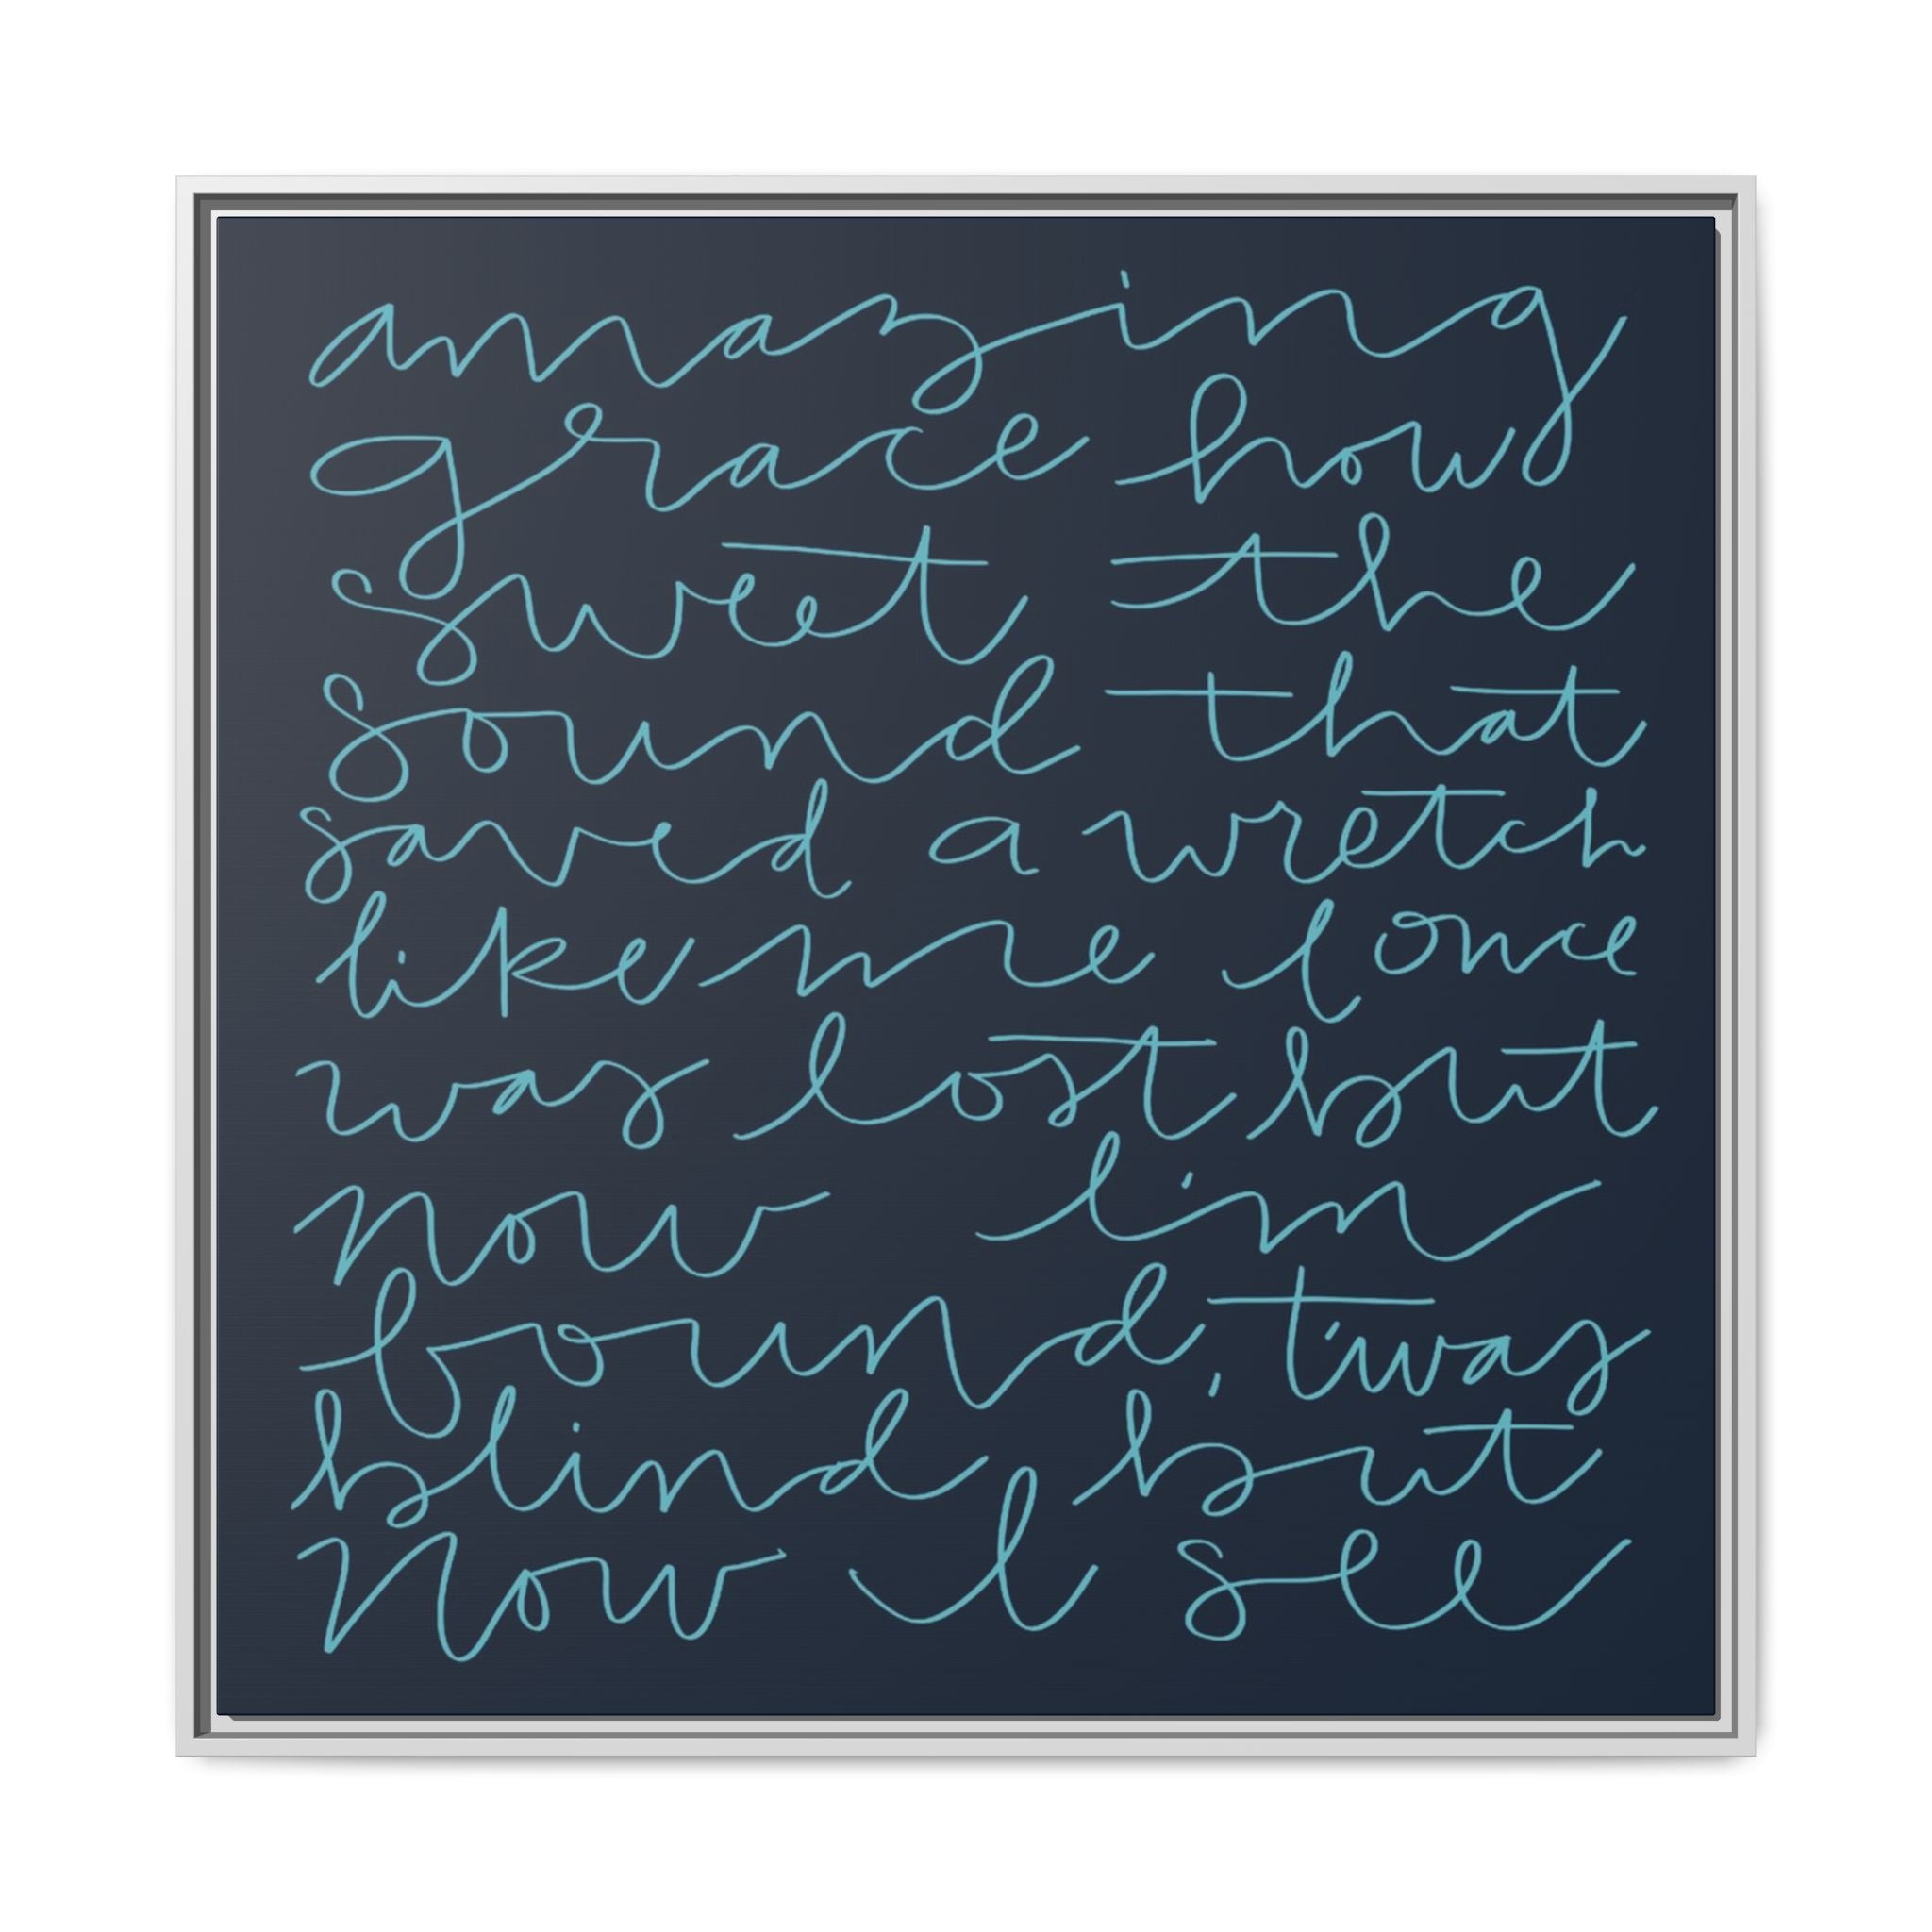 amazing
grace how
sweet the
sound that
saved a wretch
like me I once
was lost but
now I'm
found, t'was
blind but
Now I see